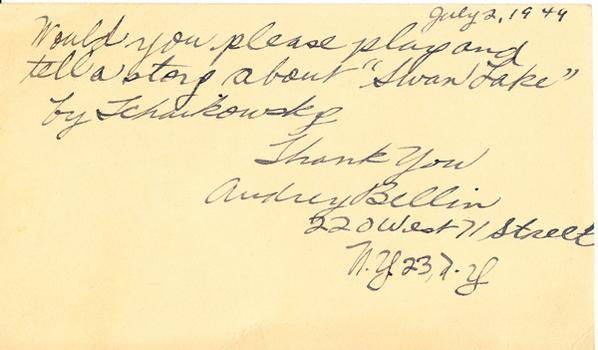 July 2, 1949
Would you please play and
tell a story about "Swan Lake"
by Tchaikowsky
Thank You
Audrey Bellin
220 West 71 Street
N.Y. 23, N.Y